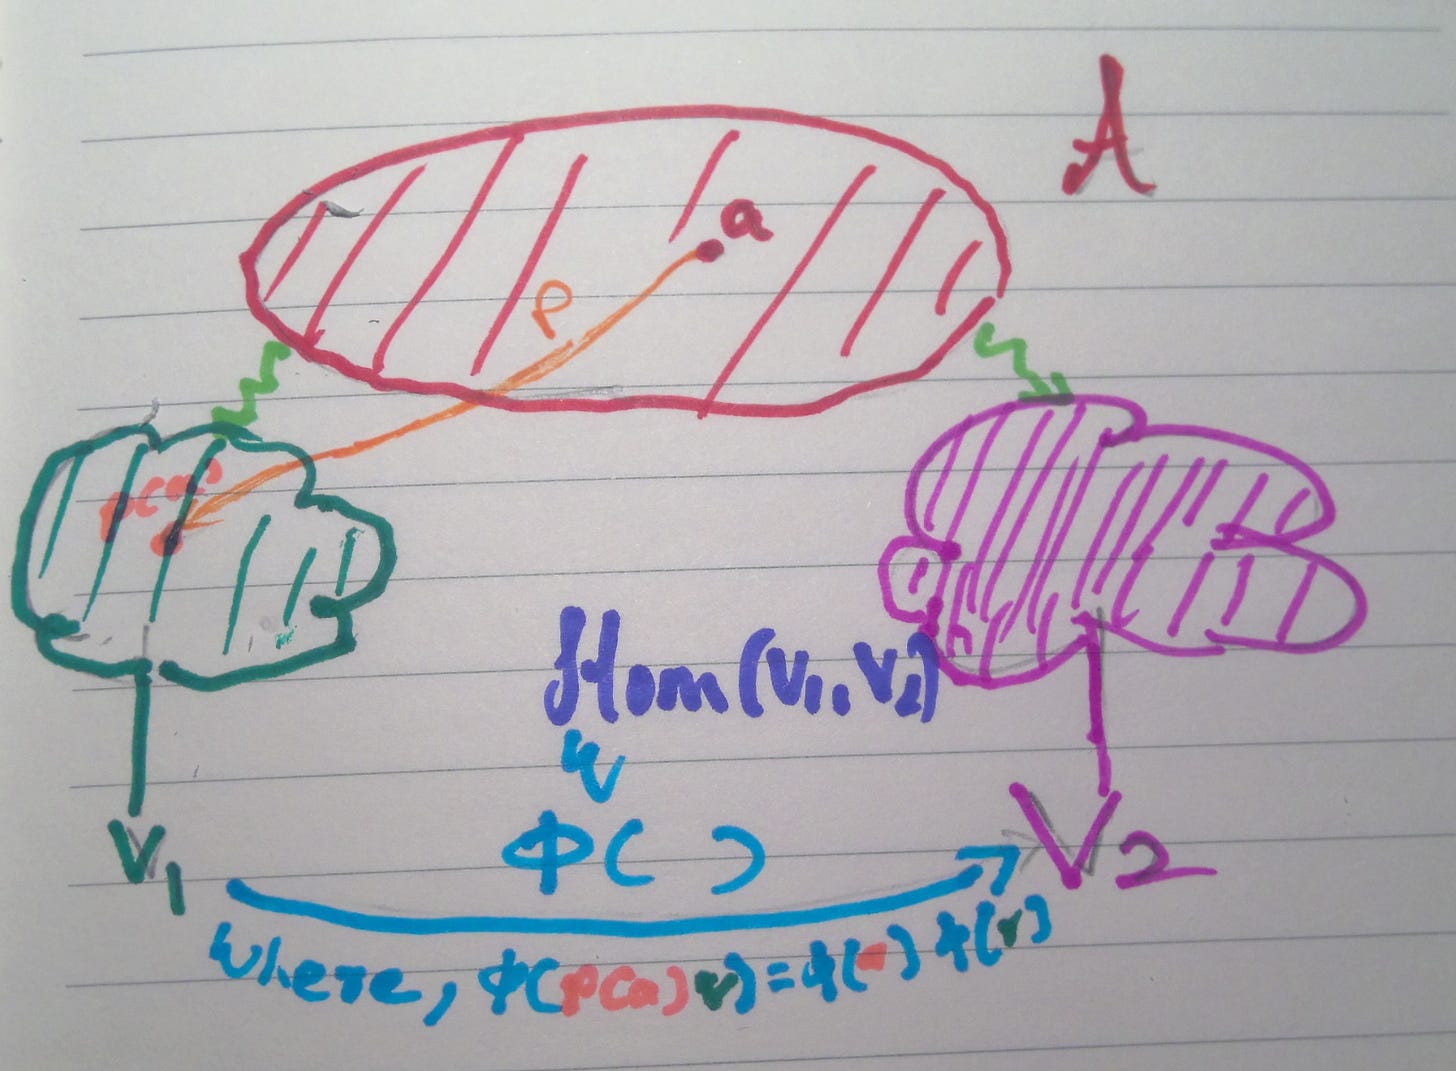 A
a
ρ
ρ(a)
Hom(V₁, V₂)
Φ( )
V₁
V₂
where, Φ(ρ(a)v)=Φ(a)Φ(v)